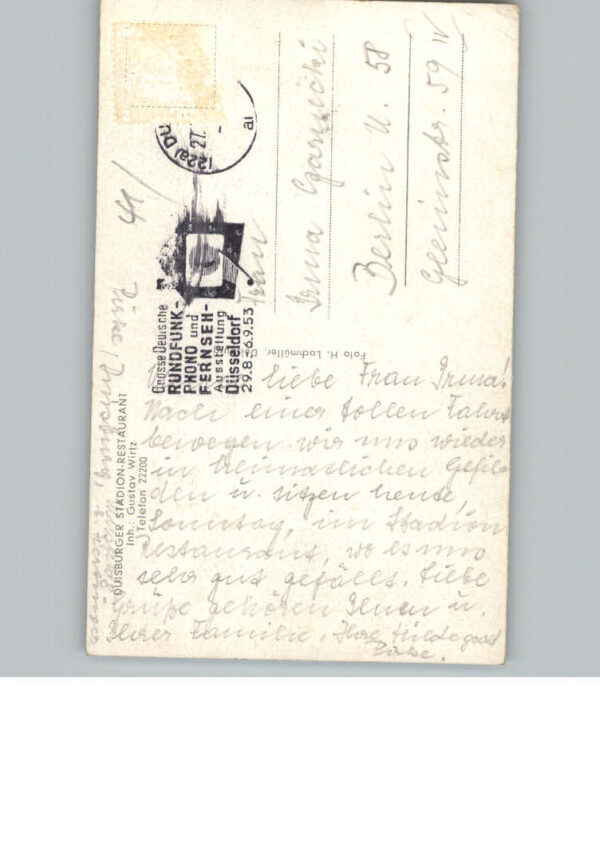 (22a) DU
27.
ai
Grosse Deutsche
RUNDFUNK-
PHONO und
FERNSEH-
Ausstellung
Düsseldorf
29.8.-6.9.53
Frau
Irma
Berlin N. 58
Gleimstr. 59 IV
DUISBURGER STADION-RESTAURANT
Inh.: Gustav Wirtz
Telefon 22200
Foto H. Lochmüller,
liebe Frau Irma!
Nach einer tollen Fahrt
bewegen wir uns wieder
in heimatlichen Gefil-
den u. sitzen heute,
Sonntag, im Stadion
Restaurant, wo es uns
sehr gut gefällt. Liebe
Grüße gehören Ihnen u.
Ihrer Familie, Ihre Hildegard